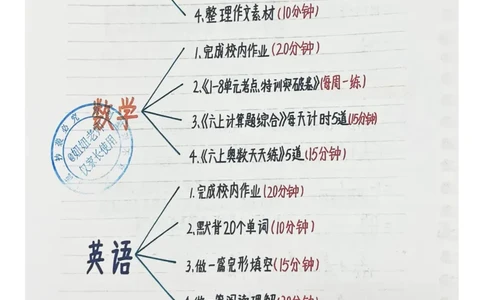 4.整理作文素材(10分钟)
数学
1.完成校内作业(20分钟)
2.《1-8单元考点特训突破卷》(每周一练)
3.《六上计算题综合》每天计时5道(15分钟)
4.《六上奥数天天练》5道(15分钟)
仅家长使用
英语
1.完成校内作业(20分钟)
2.默背20个单词(10分钟)
3.做一篇完形填空(15分钟)
4.做一篇阅读理解(20分钟)